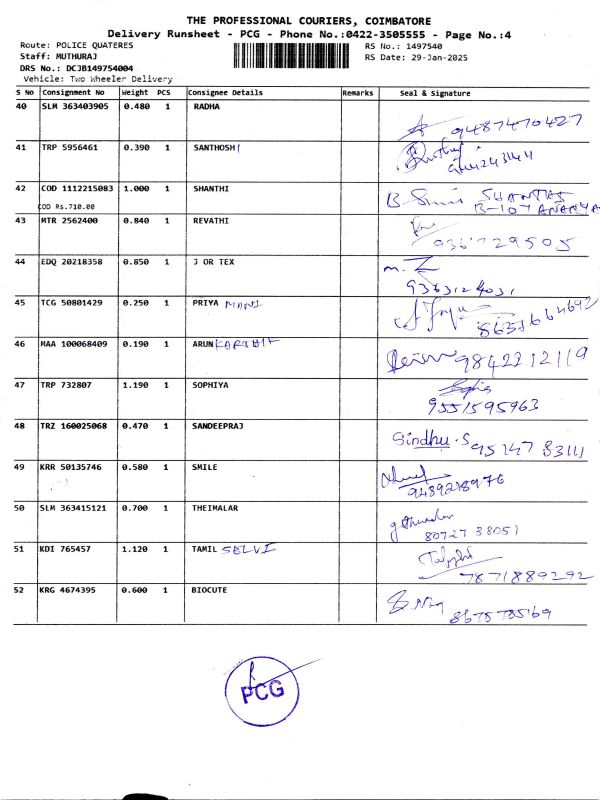 THE PROFESSIONAL COURIERS, COIMBATORE
Delivery Runsheet - PCG - Phone No.:0422-3505555 - Page No.:4
Route: POLICE QUATERES RS No.: 1497540
Staff: MUTHURAJ RS Date: 29-Jan-2025
DRS No.: DCJB149754004
Vehicle: Two Wheeler Delivery
S No Consignment No Weight PCS Consignee Details Remarks Seal & Signature
40 SLM 363403905 0.480 1 RADHA
9487470427
41 TRP 5956461 0.390 1 SANTHOSH
42 COD 1112215083 1.000 1 SHANTHI B. SHANTHI
COD Rs.710.00 B-107 ANANYA
43 MTR 2562400 0.840 1 REVATHI
9367729505
44 EDQ 20218358 0.850 1 J OR TEX m.
9363124031
45 TCG 50801429 0.250 1 PRIYA MANI
8631664692
46 MAA 100068409 0.190 1 ARUN KARTHIK
9842212119
47 TRP 732807 1.190 1 SOPHIYA
9551595963
48 TRZ 160025068 0.470 1 SANDEEPRAJ Sindhu.S 95147 83111
49 KRR 50135746 0.580 1 SMILE
9489218976
50 SLM 363415121 0.700 1 THEIMALAR
80727 38051
51 KDI 765457 1.120 1 TAMIL SELVI
7871889292
52 KRG 4674395 0.600 1 BIOCUTE
8675785169
PCG